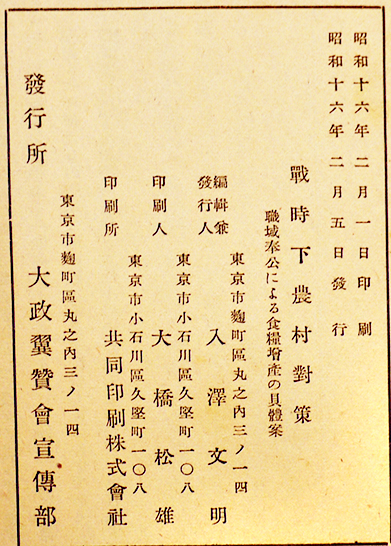 昭和十六年二月一日印刷
昭和十六年二月五日發行
戰時下農村對策
職域奉公による食糧增產の具體案
東京市麴町區丸之內三ノ一四
編輯兼發行人 入澤文明
東京市小石川區久堅町一〇八
印刷人 大橋松雄
東京市小石川區久堅町一〇八
印刷所 共同印刷株式會社
東京市麴町區丸之內三ノ一四
發行所 大政翼贊會宣傳部